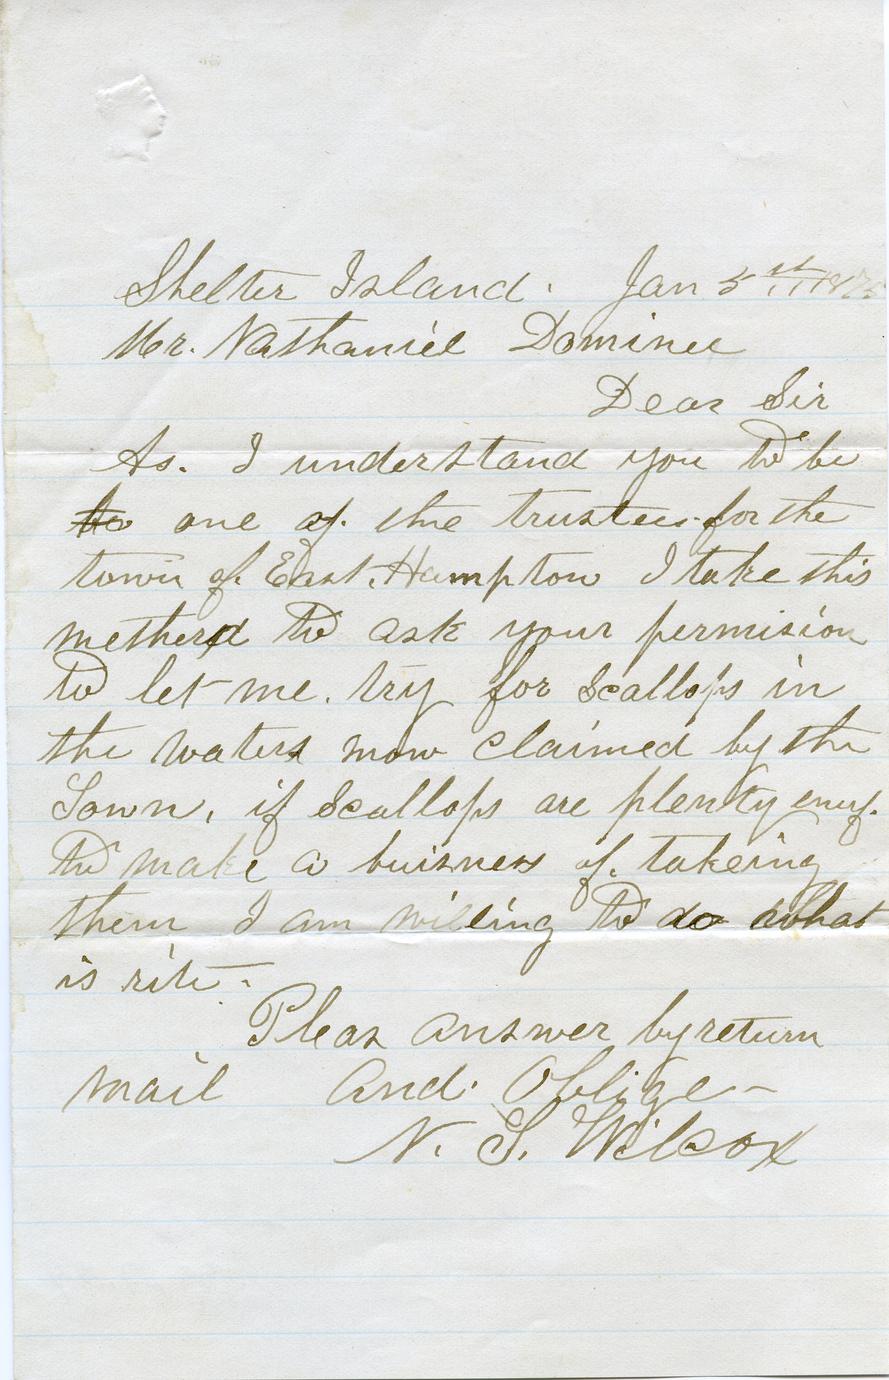 Shelter Island. Jan 5th
Mr. Nathaniel Dominee
Dear Sir
As. I understand you to be
to one of. the trustees for the
town of. East. Hampton I take this
metherd to ask your permision
to let me. try for Scallops in
the waters now claimed by the
Town, if Scallops are plenty enuf.
to make a buisness of. takeing
them I am willing to do what
is rite.
Pleas answer by return
mail And. Oblige
N. S. Wilcox